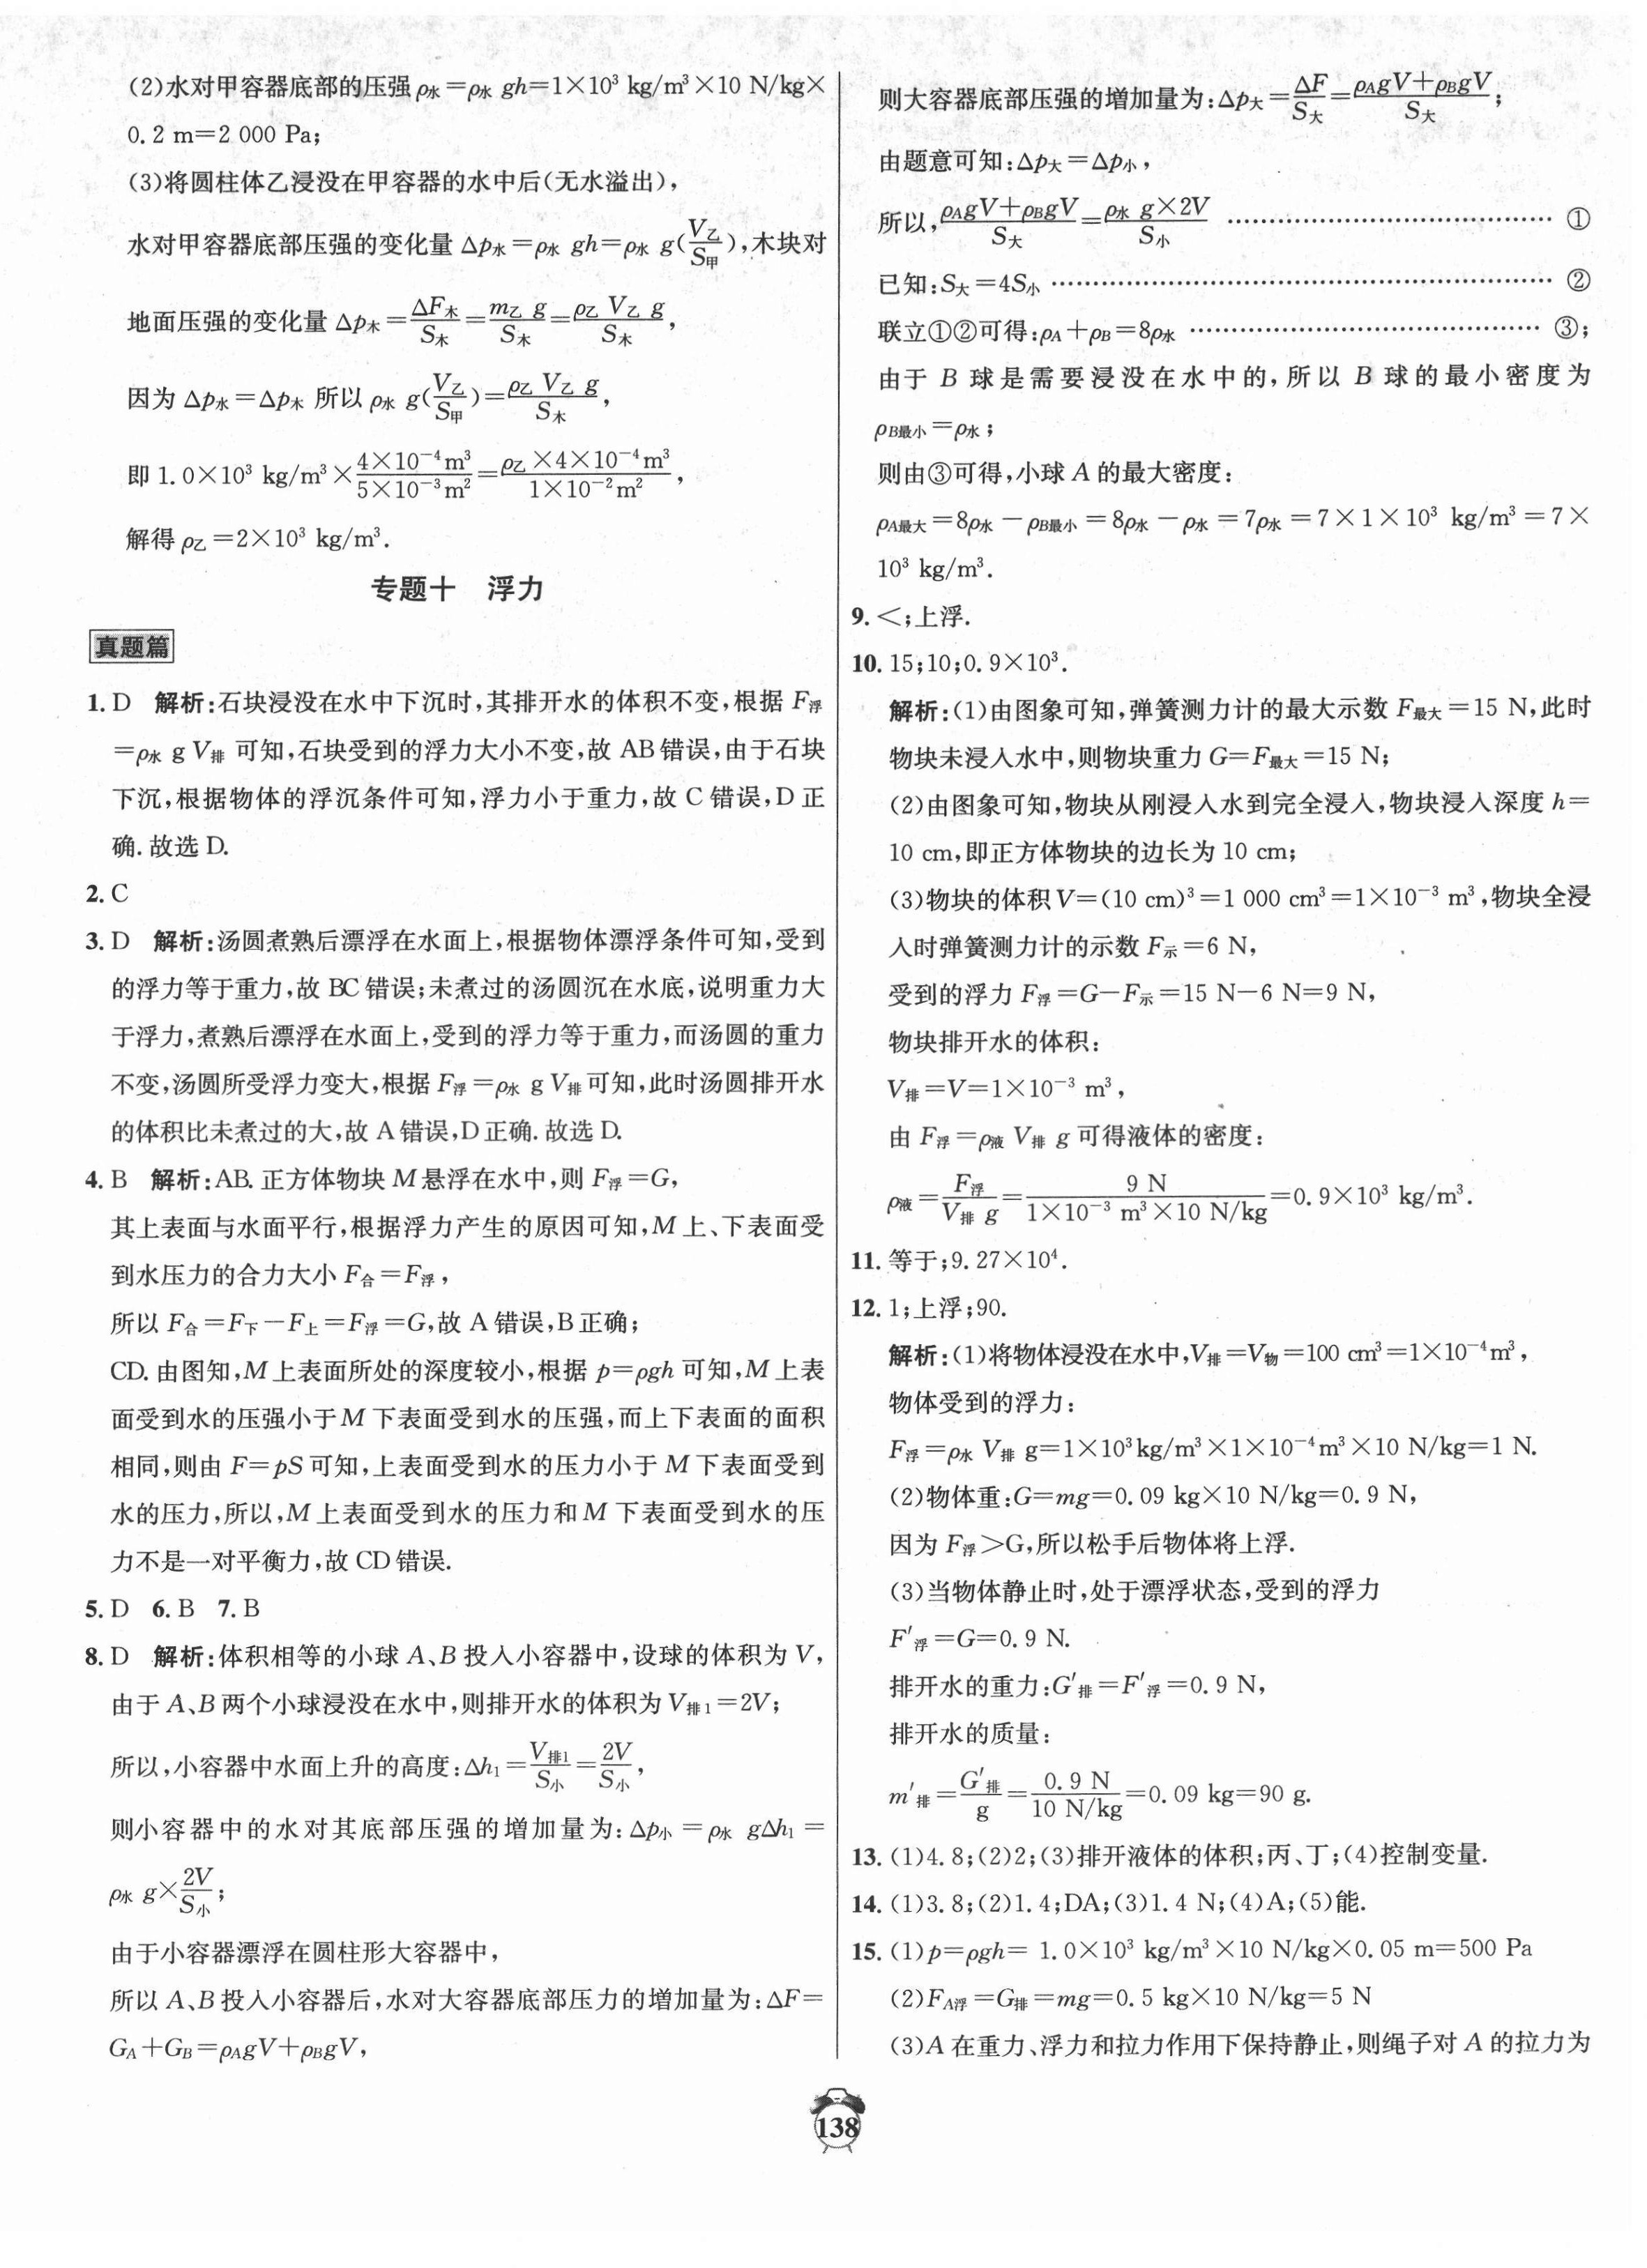 (2)水对甲容器底部的压强ρ水=ρ水 gh=1×10³ kg/m³×10 N/kg×
0.2 m=2 000 Pa;
(3)将圆柱体乙浸没在甲容器的水中后(无水溢出),
水对甲容器底部压强的变化量 Δp水=ρ水 gh=ρ水 g(V乙/S甲),木块对
地面压强的变化量 Δp木=ΔF木/S木=m乙 g/S木=ρ乙 V乙 g/S木,
因为 Δp水=Δp木 所以 ρ水 g(V乙/S甲)=ρ乙 V乙 g/S木,
即 1.0×10³ kg/m³×4×10⁻⁴m³/5×10⁻³m²=ρ乙×4×10⁻⁴m³/1×10⁻²m²,
解得 ρ乙=2×10³ kg/m³.
专题十 浮力
真题篇
1. D 解析:石块浸没在水中下沉时,其排开水的体积不变,根据 F浮
=ρ水 g V排 可知,石块受到的浮力大小不变,故 AB 错误,由于石块
下沉,根据物体的浮沉条件可知,浮力小于重力,故 C 错误,D 正
确.故选 D.
2. C
3. D 解析:汤圆煮熟后漂浮在水面上,根据物体漂浮条件可知,受到
的浮力等于重力,故 BC 错误;未煮过的汤圆沉在水底,说明重力大
于浮力,煮熟后漂浮在水面上,受到的浮力等于重力,而汤圆的重力
不变,汤圆所受浮力变大,根据 F浮=ρ水 g V排 可知,此时汤圆排开水
的体积比未煮过的大,故 A 错误,D 正确.故选 D.
4. B 解析:AB.正方体物块 M 悬浮在水中,则 F浮=G,
其上表面与水面平行,根据浮力产生的原因可知,M 上、下表面受
到水压力的合力大小 F合=F浮,
所以 F合=F下-F上=F浮=G,故 A 错误,B 正确;
CD.由图知,M 上表面所处的深度较小,根据 p=ρgh 可知,M 上表
面受到水的压强小于 M 下表面受到水的压强,而上下表面的面积
相同,则由 F=pS 可知,上表面受到水的压力小于 M 下表面受到
水的压力,所以,M 上表面受到水的压力和 M 下表面受到水的压
力不是一对平衡力,故 CD 错误.
5. D 6. B 7. B
8. D 解析:体积相等的小球 A、B 投入小容器中,设球的体积为 V,
由于 A、B 两个小球浸没在水中,则排开水的体积为 V排1=2V;
所以,小容器中水面上升的高度:Δh₁=V排1/S小=2V/S小,
则小容器中的水对其底部压强的增加量为:Δp小=ρ水 gΔh₁=
ρ水 g×2V/S小;
由于小容器漂浮在圆柱形大容器中,
所以 A、B 投入小容器后,水对大容器底部压力的增加量为:ΔF=
GA+GB=ρAgV+ρBgV,
则大容器底部压强的增加量为:Δp大=ΔF/S大=ρAgV+ρBgV/S大;
由题意可知:Δp大=Δp小,
所以,ρAgV+ρBgV/S大=ρ水 g×2V/S小 …………………………………… ①
已知:S大=4S小 …………………………………………………… ②
联立①②可得:ρA+ρB=8ρ水 …………………………………… ③;
由于 B 球是需要浸没在水中的,所以 B 球的最小密度为
ρB最小=ρ水;
则由③可得,小球 A 的最大密度:
ρA最大=8ρ水-ρB最小=8ρ水-ρ水=7ρ水=7×1×10³ kg/m³=7×
10³ kg/m³.
9. <;上浮.
10. 15;10;0.9×10³.
解析:(1)由图象可知,弹簧测力计的最大示数 F最大=15 N,此时
物块未浸入水中,则物块重力 G=F最大=15 N;
(2)由图象可知,物块从刚浸入水到完全浸入,物块浸入深度 h=
10 cm,即正方体物块的边长为 10 cm;
(3)物块的体积V=(10 cm)³=1 000 cm³=1×10⁻³ m³,物块全浸
入时弹簧测力计的示数 F示=6 N,
受到的浮力 F浮=G-F示=15 N-6 N=9 N,
物块排开水的体积:
V排=V=1×10⁻³ m³,
由 F浮=ρ液 V排 g 可得液体的密度:
ρ液=F浮/V排 g=9 N/1×10⁻³ m³×10 N/kg=0.9×10³ kg/m³.
11. 等于;9.27×10⁴.
12. 1;上浮;90.
解析:(1)将物体浸没在水中,V排=V物=100 cm³=1×10⁻⁴m³,
物体受到的浮力:
F浮=ρ水 V排 g=1×10³kg/m³×1×10⁻⁴m³×10 N/kg=1 N.
(2)物体重:G=mg=0.09 kg×10 N/kg=0.9 N,
因为 F浮>G,所以松手后物体将上浮.
(3)当物体静止时,处于漂浮状态,受到的浮力
F′浮=G=0.9 N.
排开水的重力:G′排=F′浮=0.9 N,
排开水的质量:
m′排=G′排/g=0.9 N/10 N/kg=0.09 kg=90 g.
13. (1)4.8;(2)2;(3)排开液体的体积;丙、丁;(4)控制变量.
14. (1)3.8;(2)1.4;DA;(3)1.4 N;(4)A;(5)能.
15. (1)p=ρgh= 1.0×10³ kg/m³×10 N/kg×0.05 m=500 Pa
(2)FA浮=G排=mg=0.5 kg×10 N/kg=5 N
(3)A 在重力、浮力和拉力作用下保持静止,则绳子对 A 的拉力为
138